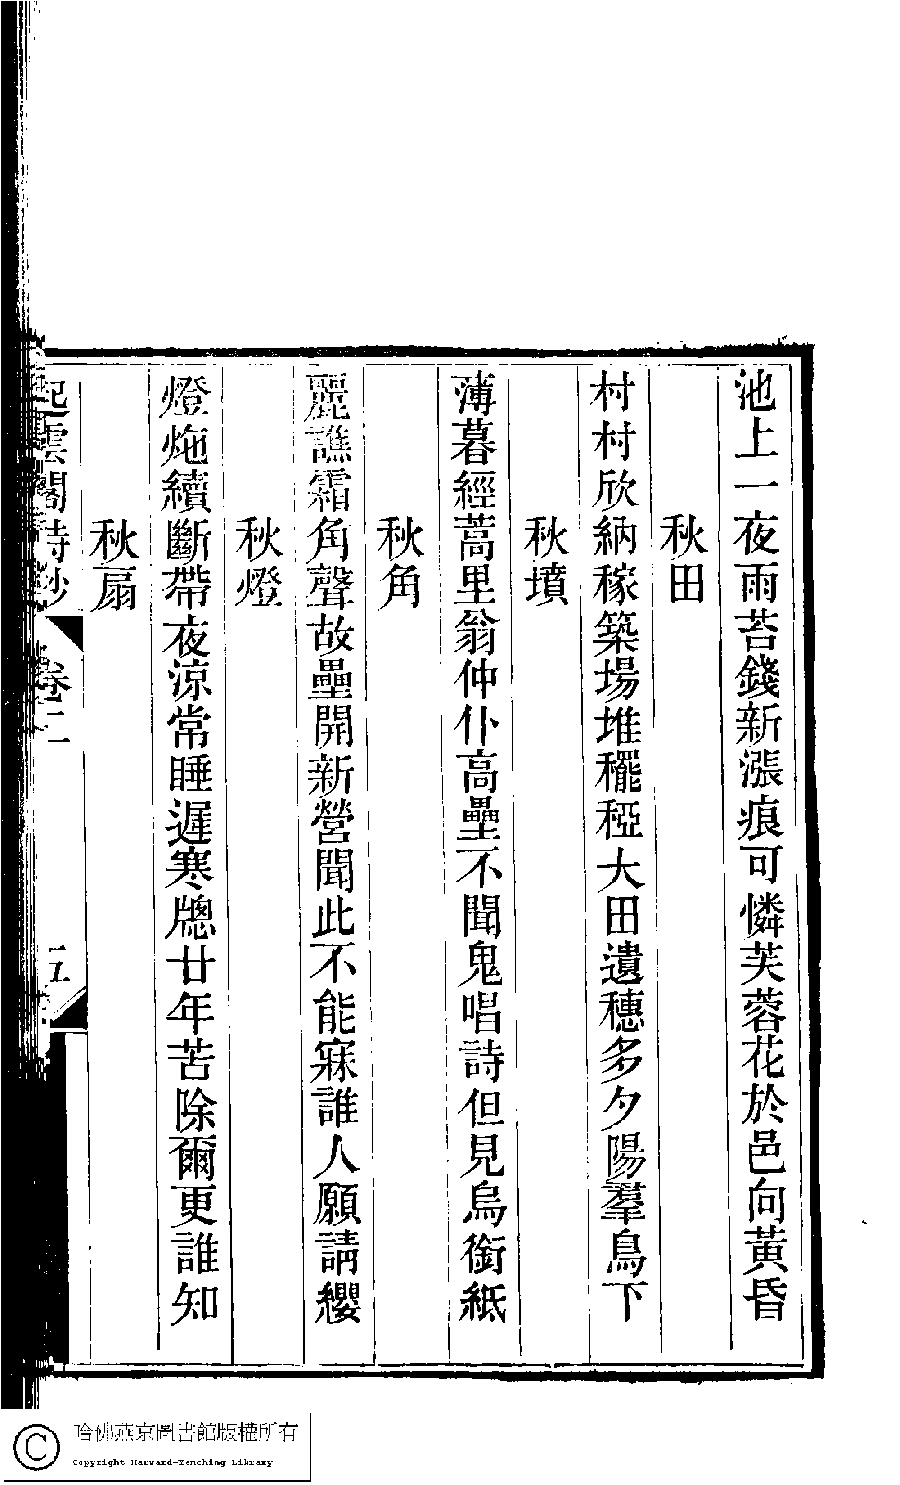 池上一夜雨苔錢新漲痕可憐芙蓉花於邑向黃昏
秋田
村村欣納稼築場堆䆉稏大田遺穗多夕陽羣鳥下
秋墳
薄暮經蒿里翁仲仆高壘不聞鬼唱詩但見烏銜紙
秋角
麗譙霜角聲故壘開新營聞此不能寐誰人願請纓
秋燈
燈炧續斷帶夜涼常睡遲寒牕廿年苦除爾更誰知
秋扇
起雲閣詩鈔
卷二
五
哈佛燕京圖書館版權所有
Copyright Harvard-Yenching Library